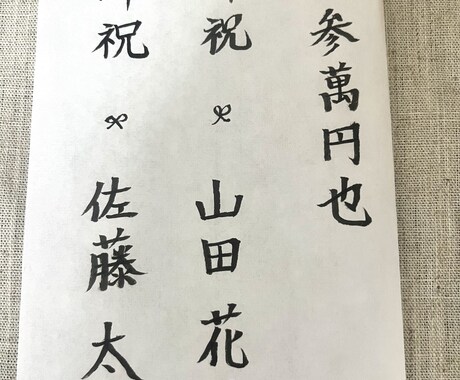 参萬円也
祝 山田花
祝 佐藤太